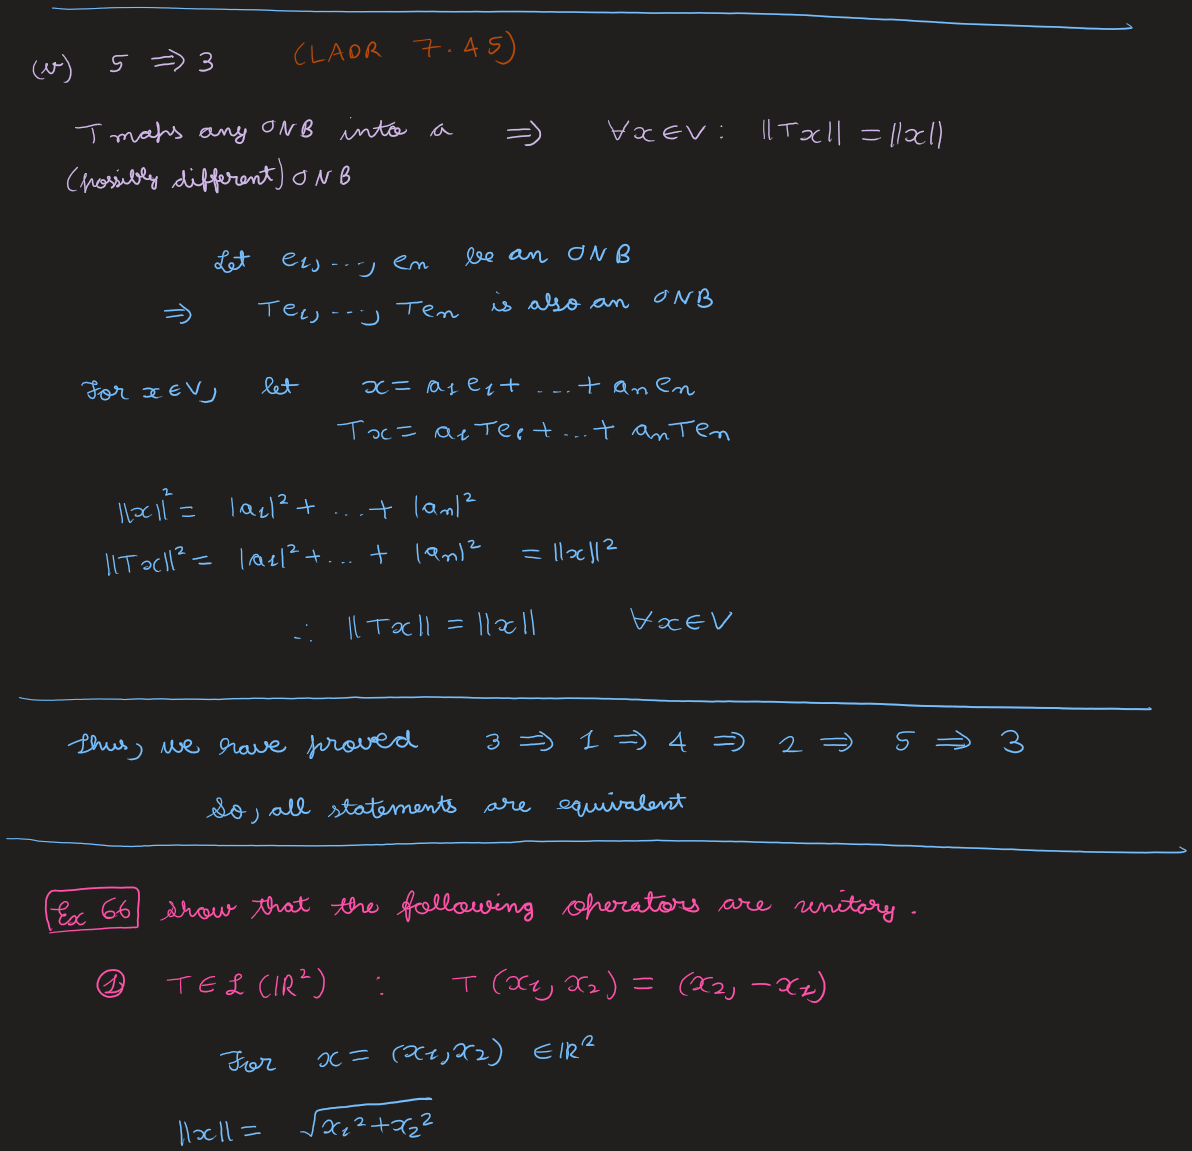 (v) 5 ⇒ 3 (LADR 7.45)
T maps any ONB into a ⇒ ∀x∈V: ||Tx|| = ||x||
(possibly different) ONB
Let e₁, ..., eₙ be an ONB
⇒ Te₁, ..., Teₙ is also an ONB
For x∈V, let x = a₁e₁ + ... + aₙeₙ
Tx = a₁Te₁ + ... + aₙTeₙ
||x||² = |a₁|² + ... + |aₙ|²
||Tx||² = |a₁|² + ... + |aₙ|² = ||x||²
∴ ||Tx|| = ||x|| ∀x∈V
Thus, we have proved 3 ⇒ 1 ⇒ 4 ⇒ 2 ⇒ 5 ⇒ 3
So, all statements are equivalent
Ex 66 Show that the following operators are unitary.
① T∈ℒ(ℝ²) : T(x₁, x₂) = (x₂, -x₁)
For x = (x₁, x₂) ∈ℝ²
||x|| = √(x₁²+x₂²)